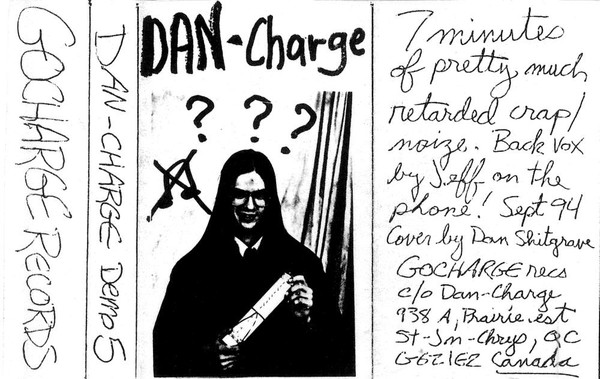 GOCHARGE RECORDS
DAN-CHARGE DEMO 5
DAN-Charge
? ? ?
7 minutes
of pretty much
retarded crap/
noize. Back Vox
by Jeff on the
phone! Sept 94
Cover by Dan Shitgrave
GOCHARGE recs
c/o Dan-Charge
938 A, Prairie est
St-Jn-Chrys, QC
G6Z1E2 Canada